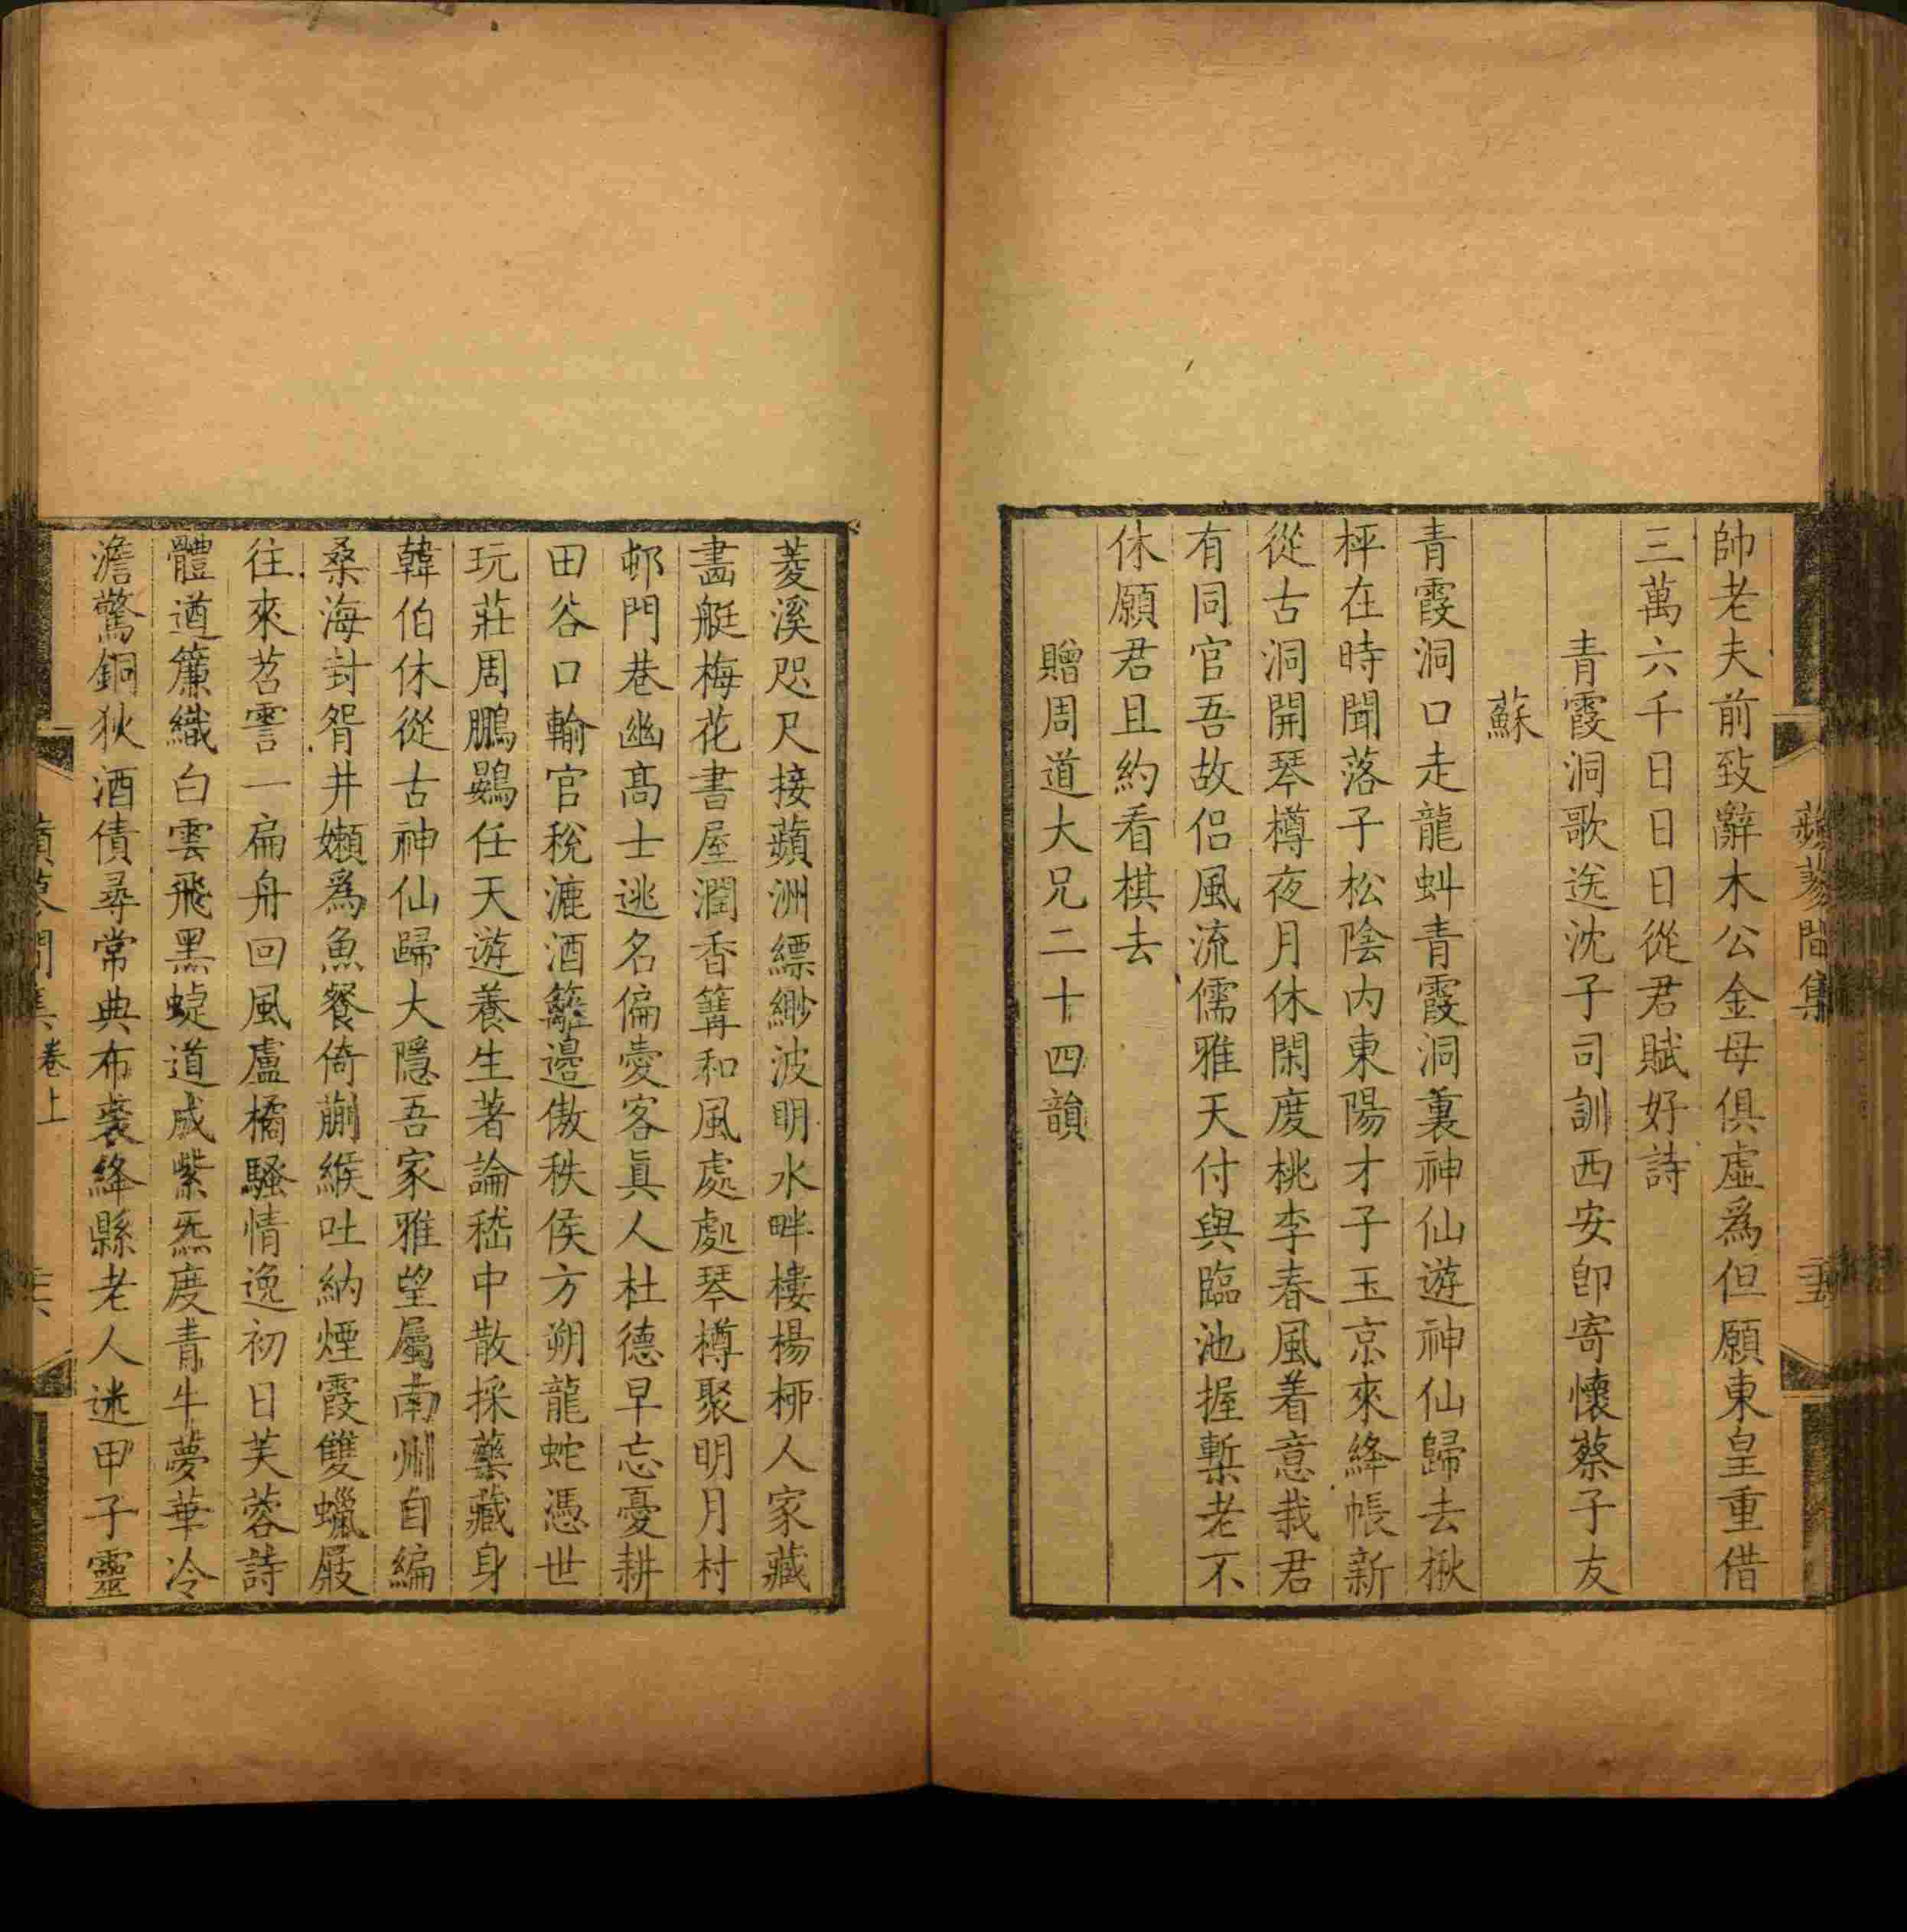 帥老夫前致辭木公金母俱虛爲但願東皇重借
三萬六千日日日從君賦好詩
青霞洞歌送沈子司訓西安卽寄懷蔡子友
蘇
青霞洞口走龍虯青霞洞裏神仙遊神仙歸去楸
枰在時聞落子松陰內東陽才子玉京來絳帳新
從古洞開琴樽夜月休閑度桃李春風着意栽君
有同官吾故侶風流儒雅天付與臨池握槧老不
休願君且約看棋去
贈周道大兄二十四韻
蘋蓼閒集
二十五
菱溪咫尺接蘋洲縹緲波明水畔樓楊栁人家藏
畵艇梅花書屋潤香篝和風處處琴樽聚明月村
邨門巷幽髙士逃名偏愛客眞人杜德早忘憂耕
田谷口輸官稅漉酒籬邉傲秩侯方朔龍蛇憑世
玩莊周鵬鷃任天遊養生著論嵇中散採藥藏身
韓伯休從古神仙歸大隱吾家雅望屬南州自編
桑海封胥井嬾爲魚餐倚蒯緱吐納煙霞雙蠟屐
往來苕霅一扁舟回風盧橘騷情逸初日芙蓉詩
體遒簾織白雲飛黑蝬道成紫炁度青牛夢華冷
澹驚銅狄酒債尋常典布裘絳縣老人迷甲子靈
蘋蓼閒集
卷上
二十六